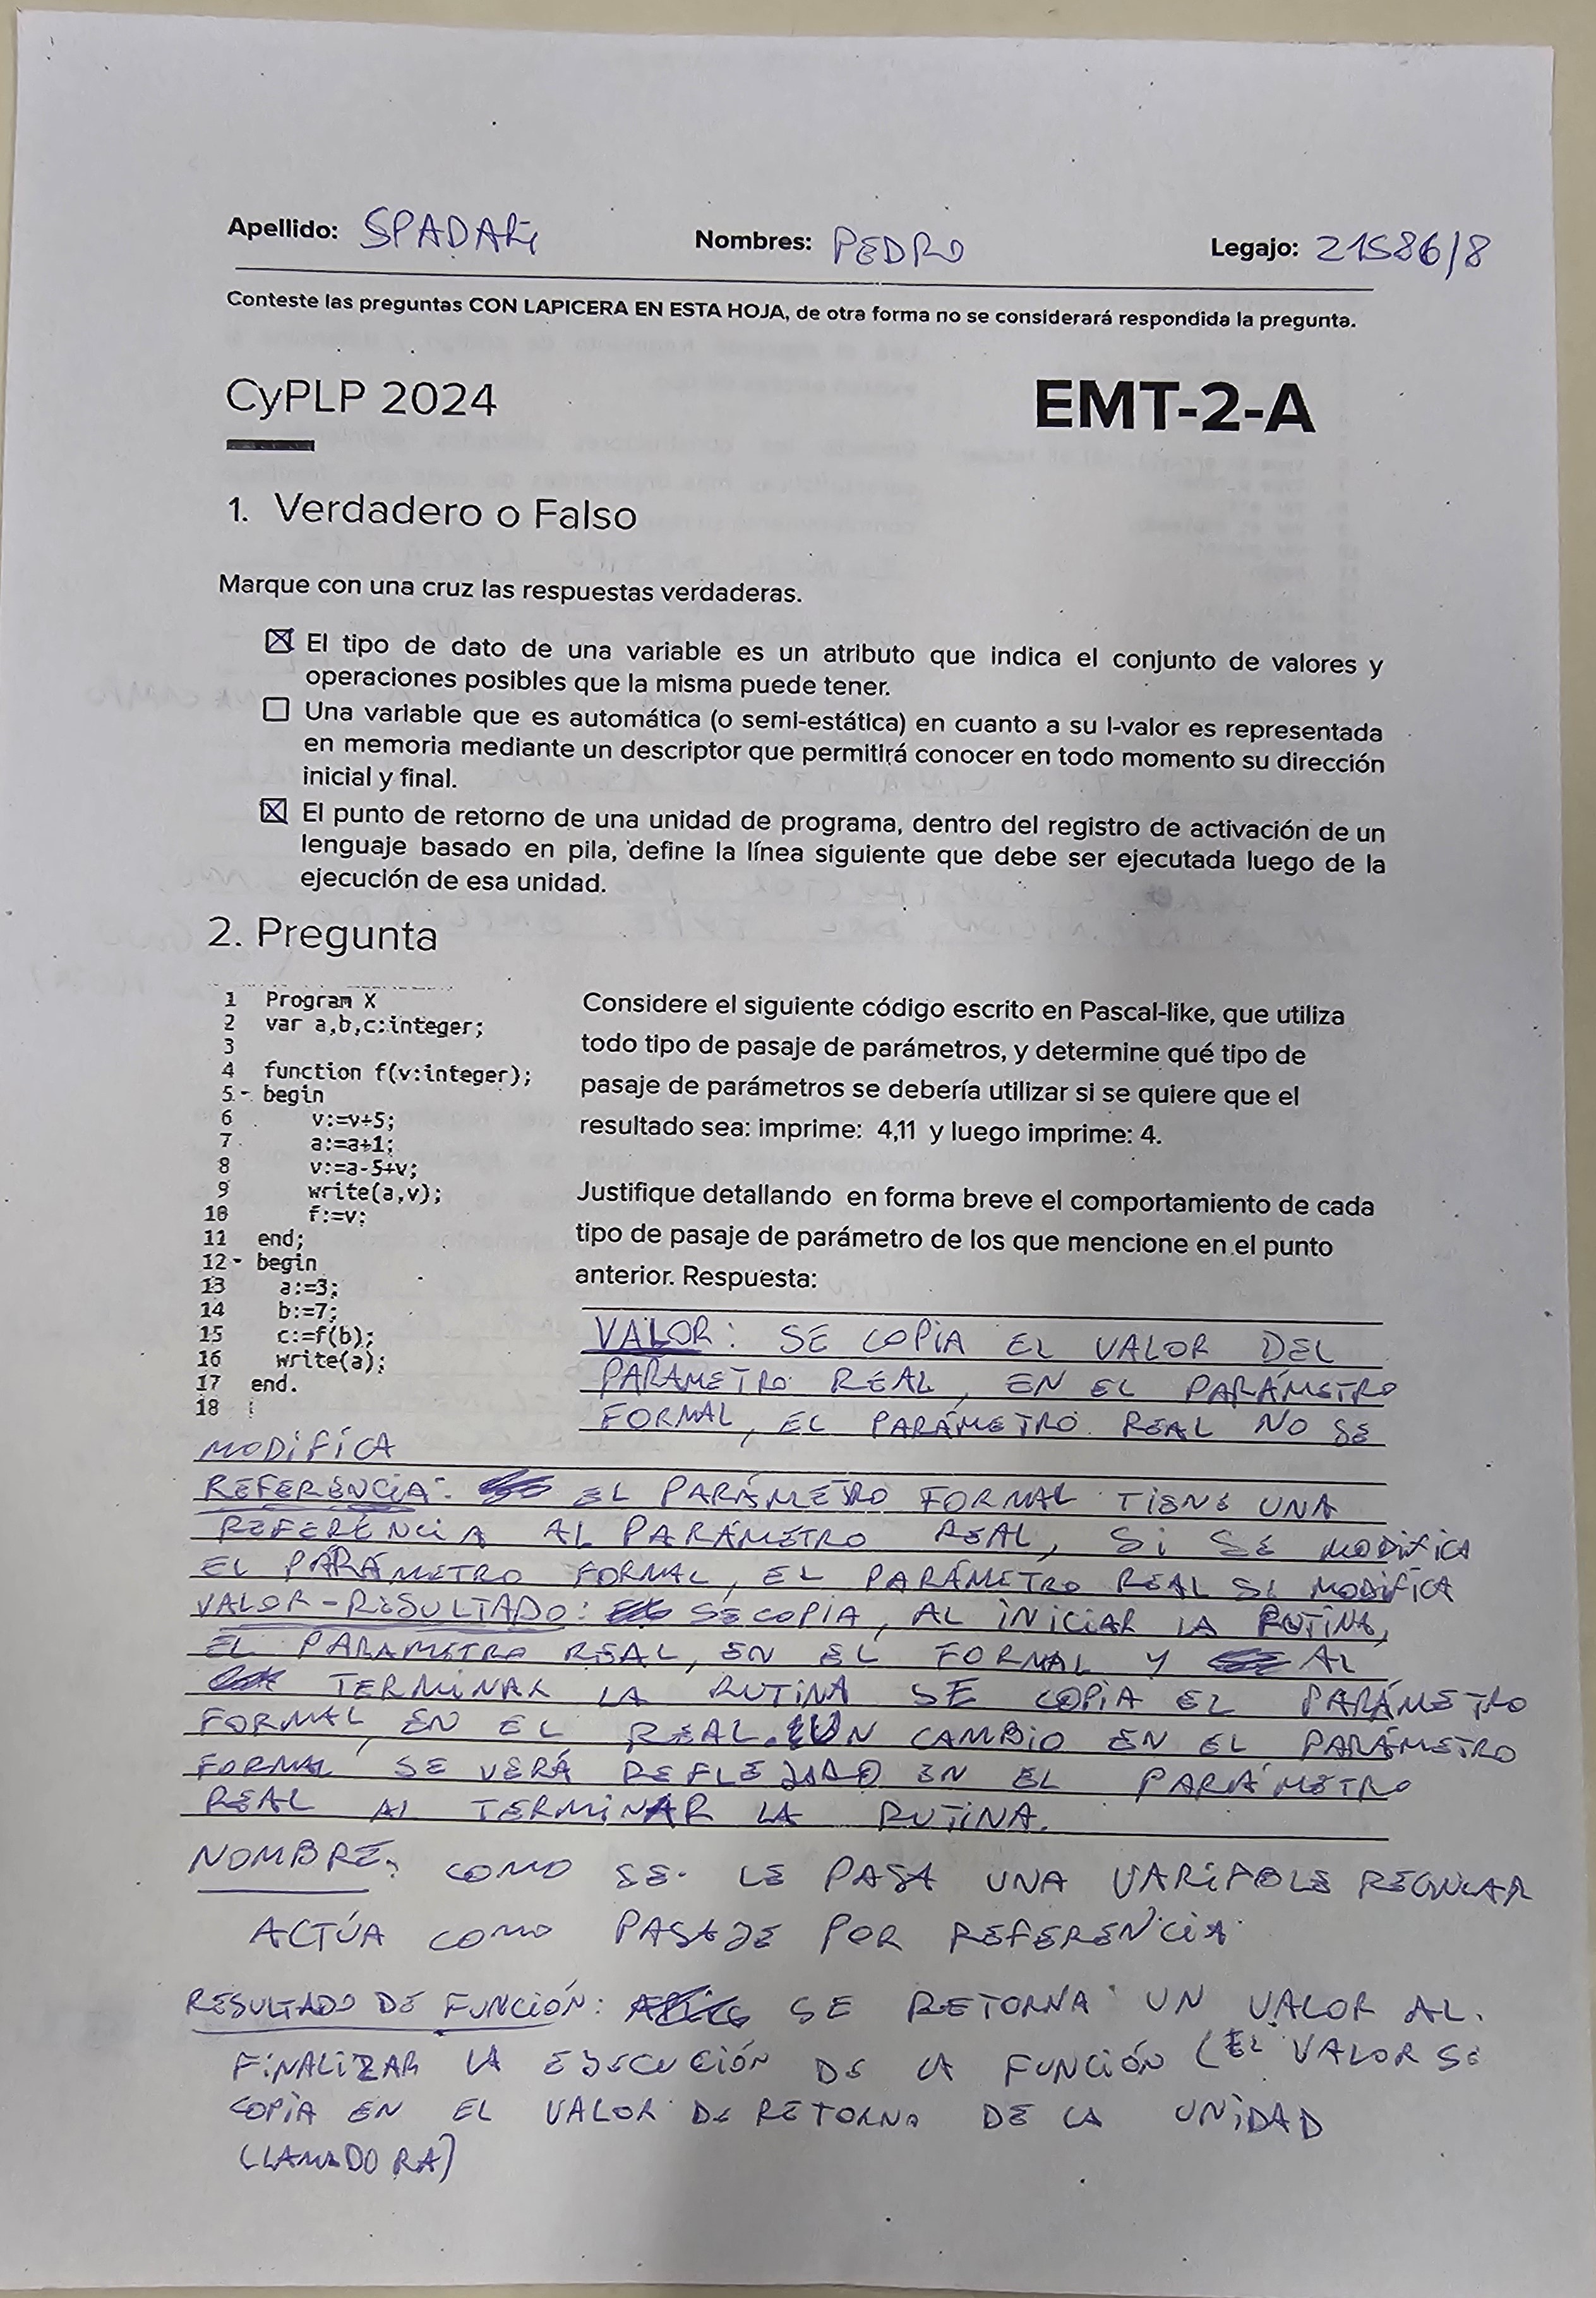 Apellido: SPADARI Nombres: PEDRO Legajo: 21586/8
Conteste las preguntas CON LAPICERA EN ESTA HOJA, de otra forma no se considerará respondida la pregunta.
CyPLP 2024 EMT-2-A
1. Verdadero o Falso
Marque con una cruz las respuestas verdaderas.
☒ El tipo de dato de una variable es un atributo que indica el conjunto de valores y
operaciones posibles que la misma puede tener.
☐ Una variable que es automática (o semi-estática) en cuanto a su l-valor es representada
en memoria mediante un descriptor que permitirá conocer en todo momento su dirección
inicial y final.
☒ El punto de retorno de una unidad de programa, dentro del registro de activación de un
lenguaje basado en pila, define la línea siguiente que debe ser ejecutada luego de la
ejecución de esa unidad.
2. Pregunta
1 Program X
2 var a,b,c:integer;
3
4 function f(v:integer);
5 - begin
6 v:=v+5;
7 a:=a+1;
8 v:=a-5+v;
9 write(a,v);
10 f:=v;
11 end;
12 - begin
13 a:=3;
14 b:=7;
15 c:=f(b);
16 write(a);
17 end.
18
Considere el siguiente código escrito en Pascal-like, que utiliza
todo tipo de pasaje de parámetros, y determine qué tipo de
pasaje de parámetros se debería utilizar si se quiere que el
resultado sea: imprime: 4,11 y luego imprime: 4.
Justifique detallando en forma breve el comportamiento de cada
tipo de pasaje de parámetro de los que mencione en el punto
anterior. Respuesta:
VALOR: SE COPIA EL VALOR DEL
PARAMETRO REAL, EN EL PARÁMETRO
FORMAL, EL PARÁMETRO REAL NO SE
MODIFICA
REFERENCIA: EL PARÁMETRO FORMAL TIENE UNA
REFERENCIA AL PARÁMETRO REAL, SI SE MODIFICA
EL PARÁMETRO FORMAL, EL PARÁMETRO REAL SE MODIFICA
VALOR-RESULTADO: SE COPIA, AL INICIAR LA RUTINA,
EL PARAMETRO REAL, EN EL FORMAL Y AL
TERMINAR LA RUTINA SE COPIA EL PARÁMETRO
FORMAL, EN EL REAL. UN CAMBIO EN EL PARÁMETRO
FORMAL SE VERÁ REFLEJADO EN EL PARÁMETRO
REAL AL TERMINAR LA RUTINA.
NOMBRE: COMO SE LE PASA UNA VARIABLE REGULAR
ACTÚA COMO PASAJE POR REFERENCIA
RESULTADO DE FUNCIÓN: SE RETORNA UN VALOR AL
FINALIZAR LA EJECUCIÓN DE LA FUNCIÓN (EL VALOR SE
COPIA EN EL VALOR DE RETORNO DE LA UNIDAD
LLAMADORA)